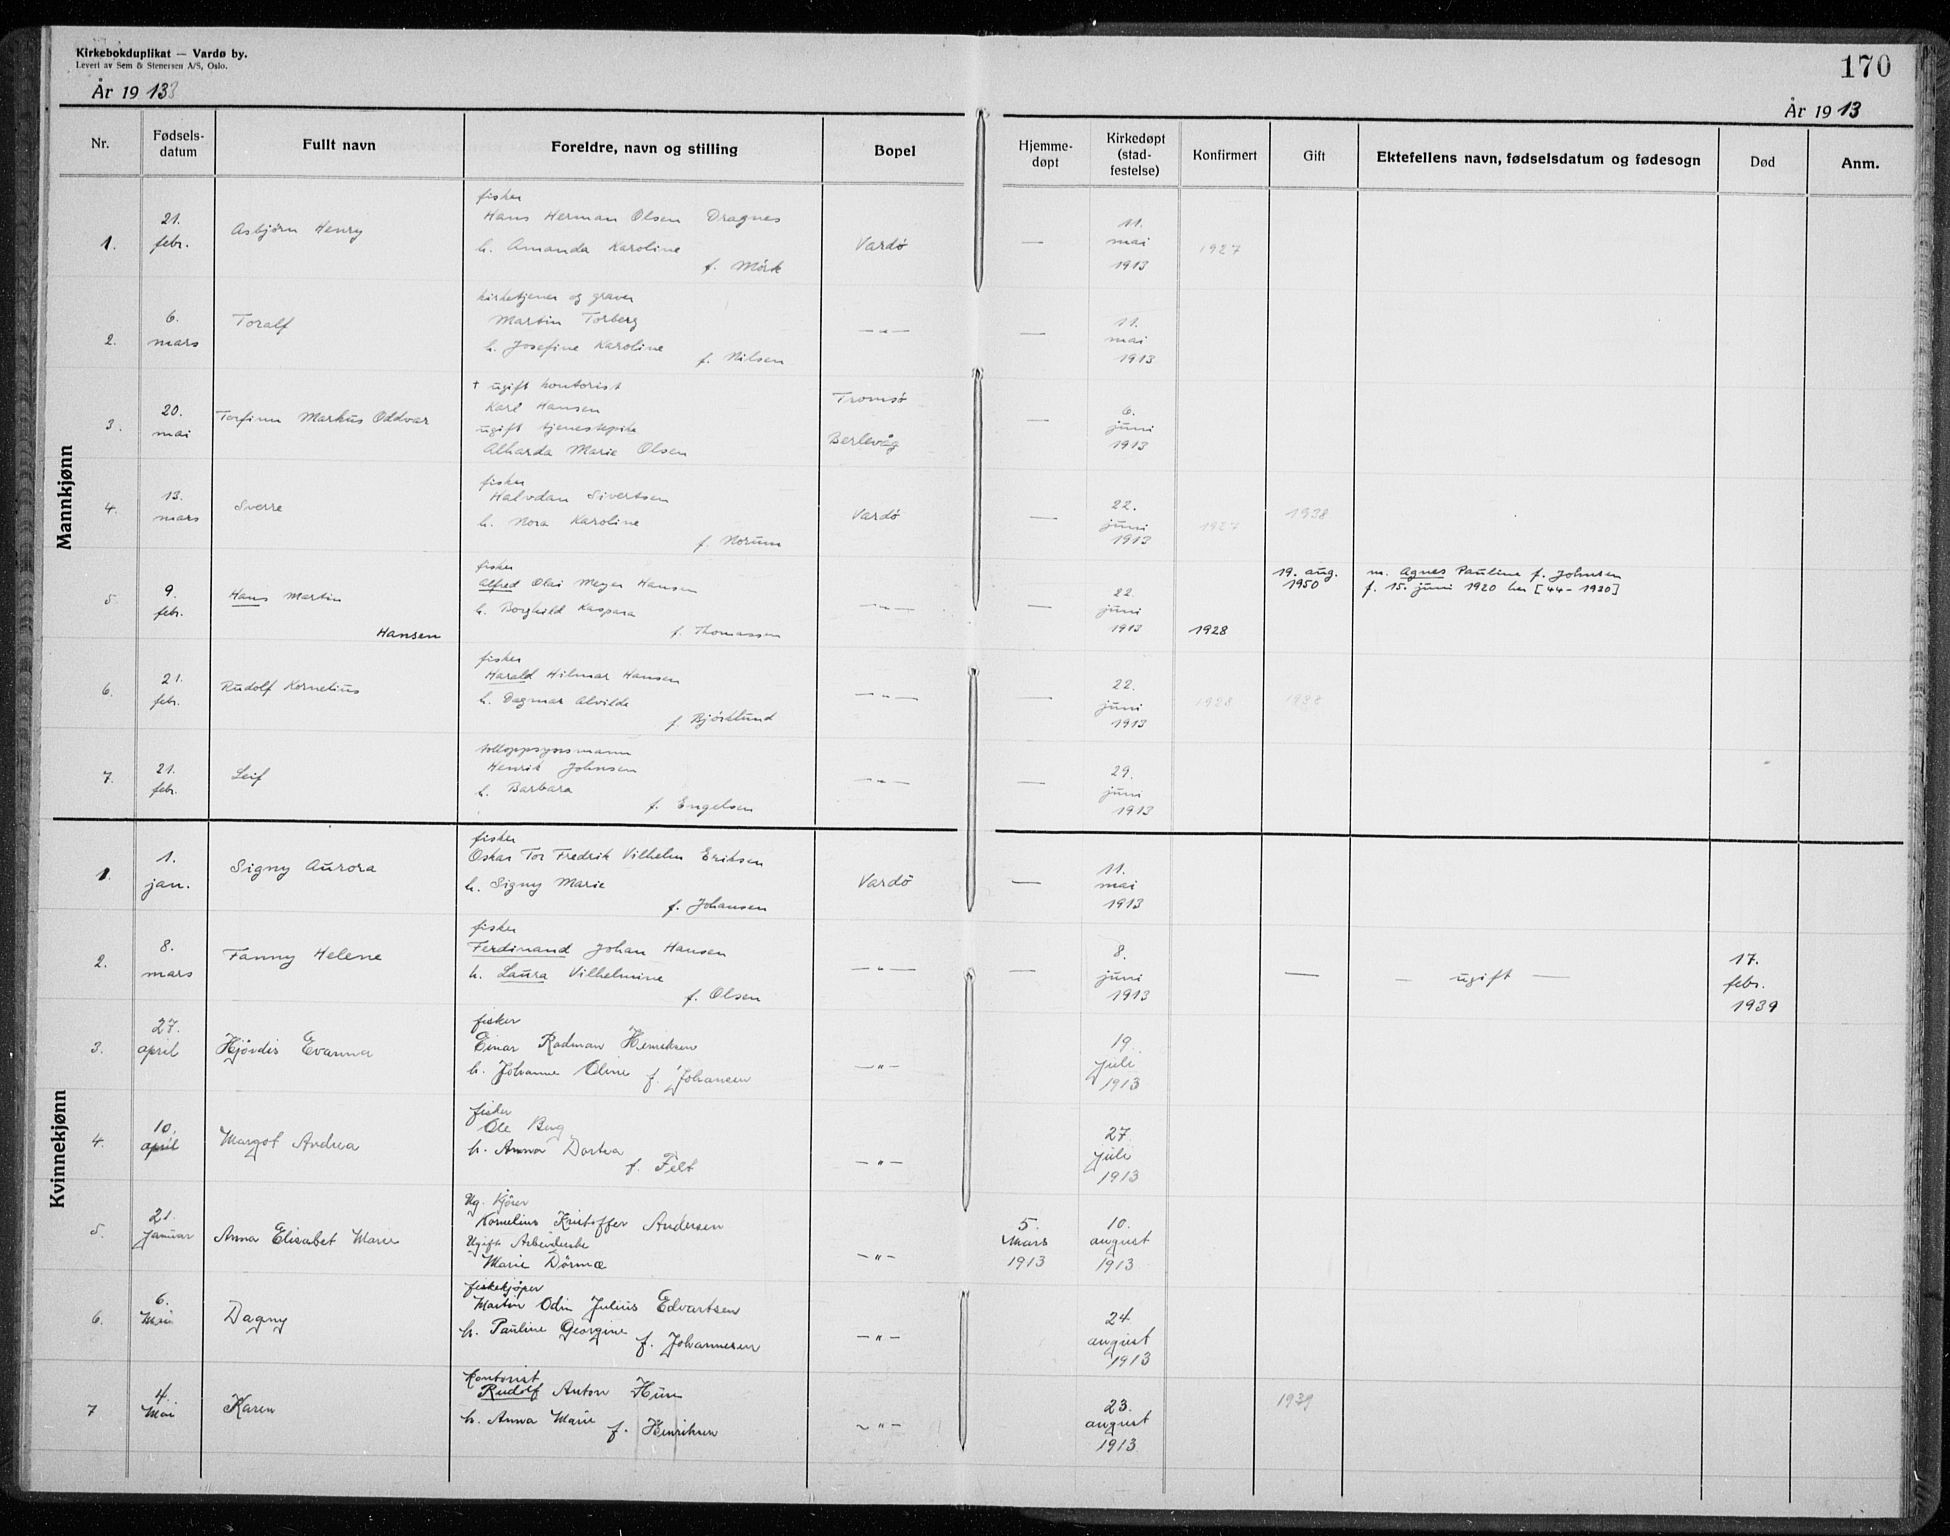 Kirkebokduplikat — Vardø by.
Levert av Sem & Stenersen A/S, Oslo.
170
År 19 13
År 19 13
Nr. Fødsels-datum Fullt navn Foreldre, navn og stilling Bopel Hjemme-døpt Kirkedøpt (stad-festelse) Konfirmert Gift Ektefellens navn, fødselsdatum og fødesogn Død Anm.
Mannkjønn
fisker
21. Hans Herman Olsen Dragnes 11.
1. febr. Asbjørn Henry h. Amanda Karoline Vardø — mai 1927
f. Mörk 1913
kirketjener og graver
6. Toralf Martin Torberg —„— — 11.
2. mars h. Josefine Karoline mai
f. Nilsen 1913
† ugift kontorist
20. Torfinn Markus Oddvar Karl Hansen Tromsø — 6.
3. mai ugift tjenestepike Berlevåg juni
Alharda Marie Olsen 1913
fisker
13. Sverre Halvdan Sivertsen 22. 1938
4. mars h. Nora Karoline Vardø — juni 1927
f. Norum 1913
fisker 19. aug. m. Agnes Pauline f. Johnsen
9. Hans Martin Alfred Olai Meyer Hansen 22. 1950 f. 15. juni 1920 her [44-1920]
5. febr. h. Borghild Kaspara —„— — juni
Hansen f. Thomassen 1913 1928
fisker
21. Rudolf Kornelius Harald Hilmar Hansen 22.
6. febr. h. Dagmar Alvilde —„— — juni 1928 1938
f. Bjørklund 1913
tolloppsynsmann
21. Leif Henrik Johnsen 29.
7. febr. h. Barbara —„— — juni
f. Engelsen 1913
Kvinnekjønn
fisker
1. Signy Aurora Oskar Tor Fredrik Vilhelm Eriksen 11.
1. jan. h. Signy Marie Vardø — mai
f. Johansen 1913
fisker
8. Fanny Helene Ferdinand Johan Hansen 8. 17.
2. mars h. Laura Vilhelmine —„— — juni — — ugift — febr.
f. Olsen 1913 1939
27. fisker
3. april Hjördis Evanna Einar Rodman Henriksen 19
h. Johanne Odine f. Johansen —„— juli
1913
fisker
10. Ole Berg 27
4. april Margot Andrea h. Anna Dortea —„— juli
f. Felt 1913
Ug. kjörer
21. Kornelius Kristoffer Andersen 5. 10.
5. Januar Anna Elisabet Marie Ugift Arbeiderske Mars august
Marie Dörmæ —„— 1913 1913
fiskekjøper
6. Martin Odin Julius Edvartsen 24
6. Mai Dagny h. Pauline Georgine —„— august
f. Johannesen 1913
Kontorist
4. Rudolf Anton 23. 1939
7 Mai Karen h. Anna Marie —„— august
f. Henriksen 1913